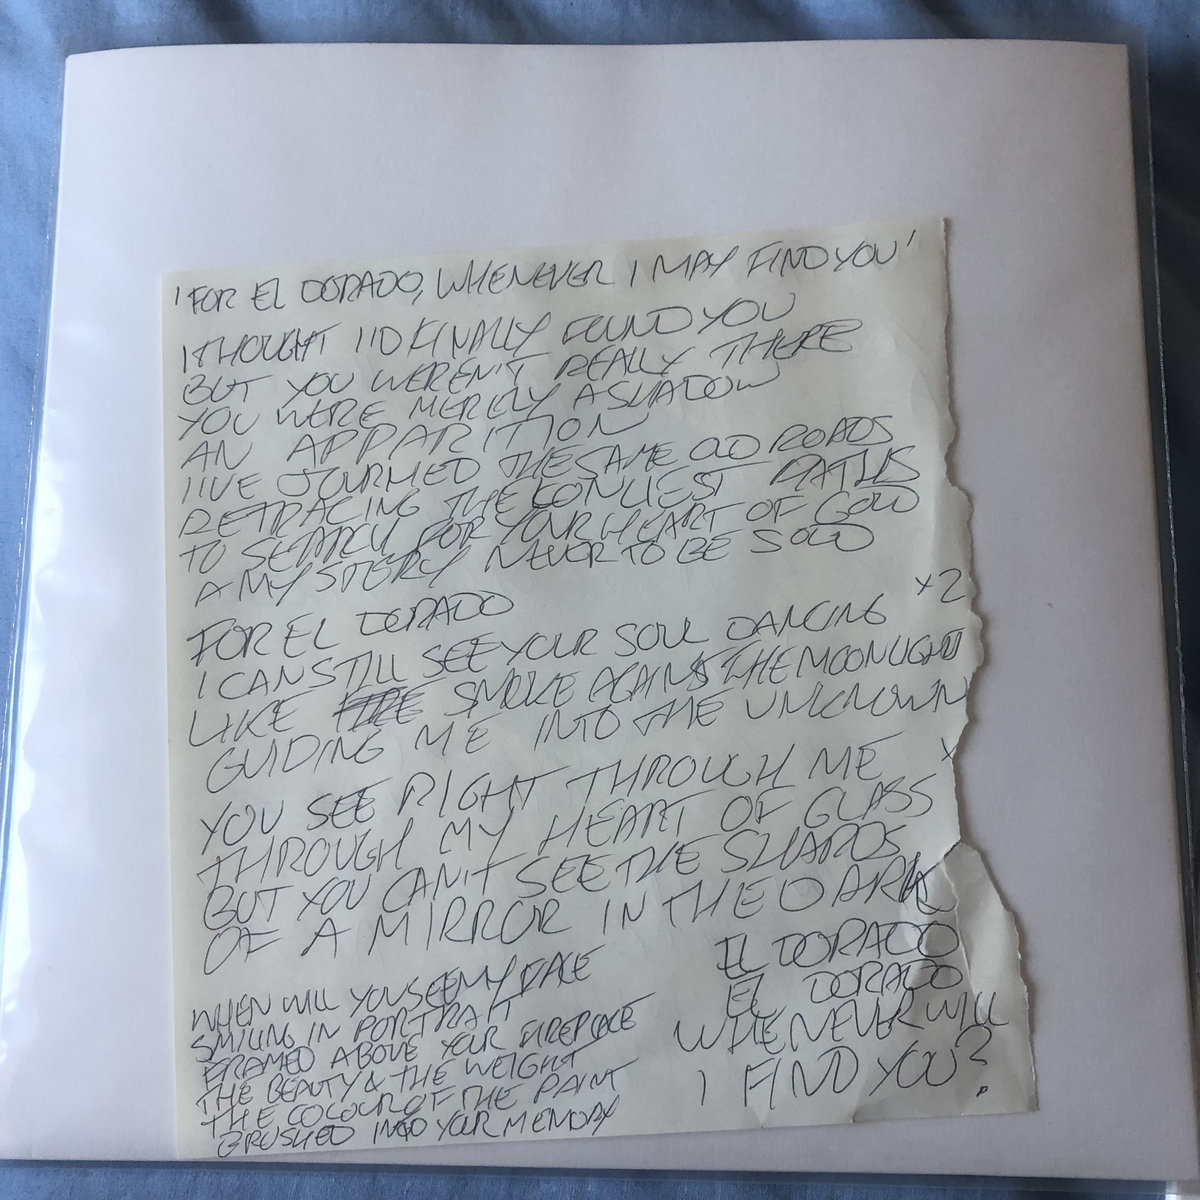 'FOR EL DORADO, WHENEVER I MAY FIND YOU'
I THOUGHT I'D FINALLY FOUND YOU
BUT YOU WEREN'T REALLY THERE
YOU WERE MERELY A SHADOW
AN APPARITION
I'VE JOURNED THE SAME OLD ROADS
RETRACING THE LONLIEST PATHS
TO SEARCH FOR YOUR HEART OF GOLD
A MYSTERY NEVER TO BE SOLD
FOR EL DORADO
I CAN STILL SEE YOUR SOUL DANCING x2
LIKE SMOKE AGAINST THE MOONLIGHT
GUIDING ME INTO THE UNKNOWN
YOU SEE RIGHT THROUGH ME x
THROUGH MY HEART OF GLASS
BUT YOU CAN'T SEE THE SHARDS
OF A MIRROR IN THE DARK
WHEN WILL YOU SEE MY FACE
SMILING IN PORTRAIT
FRAMED ABOVE YOUR FIREPLACE
THE BEAUTY & THE WEIGHT
THE COLOUR OF THE PAINT
BRUSHED INTO YOUR MEMORY
EL DORADO
EL DORADO
WHENEVER WILL
I FIND YOU?